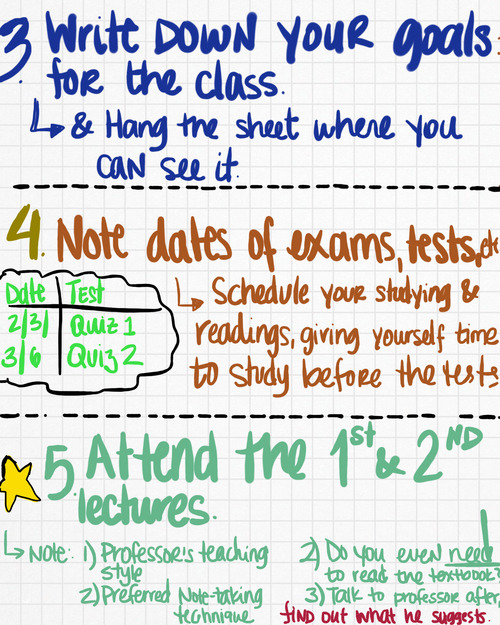 3. Write DOWN YOUR goals
for the class.
& Hang the sheet where you
CAN see it.
4. Note dates of exams, tests, etc
Date Test
2/3/ Quiz 1
3/6 Quiz 2
Schedule your studying &
readings, giving yourself time
to study before the tests
5. Attend the 1st & 2ND
lectures.
Note: 1) Professor's teaching
style
2) Preferred Note-taking
technique
2) Do you even need
to read the textbook?
3) Talk to professor after,
find out what he suggests.